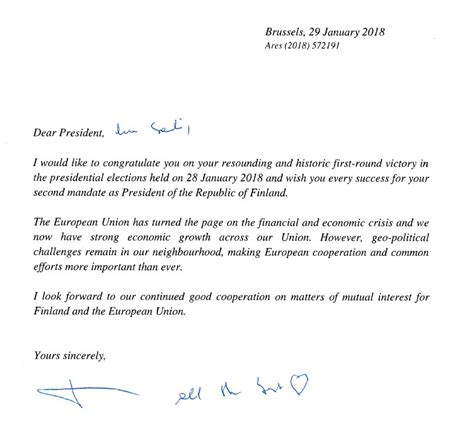 Brussels, 29 January 2018
Ares (2018) 572191
Dear President,
I would like to congratulate you on your resounding and historic first-round victory in
the presidential elections held on 28 January 2018 and wish you every success for your
second mandate as President of the Republic of Finland.
The European Union has turned the page on the financial and economic crisis and we
now have strong economic growth across our Union. However, geo-political
challenges remain in our neighbourhood, making European cooperation and common
efforts more important than ever.
I look forward to our continued good cooperation on matters of mutual interest for
Finland and the European Union.
Yours sincerely,
all the best ♡